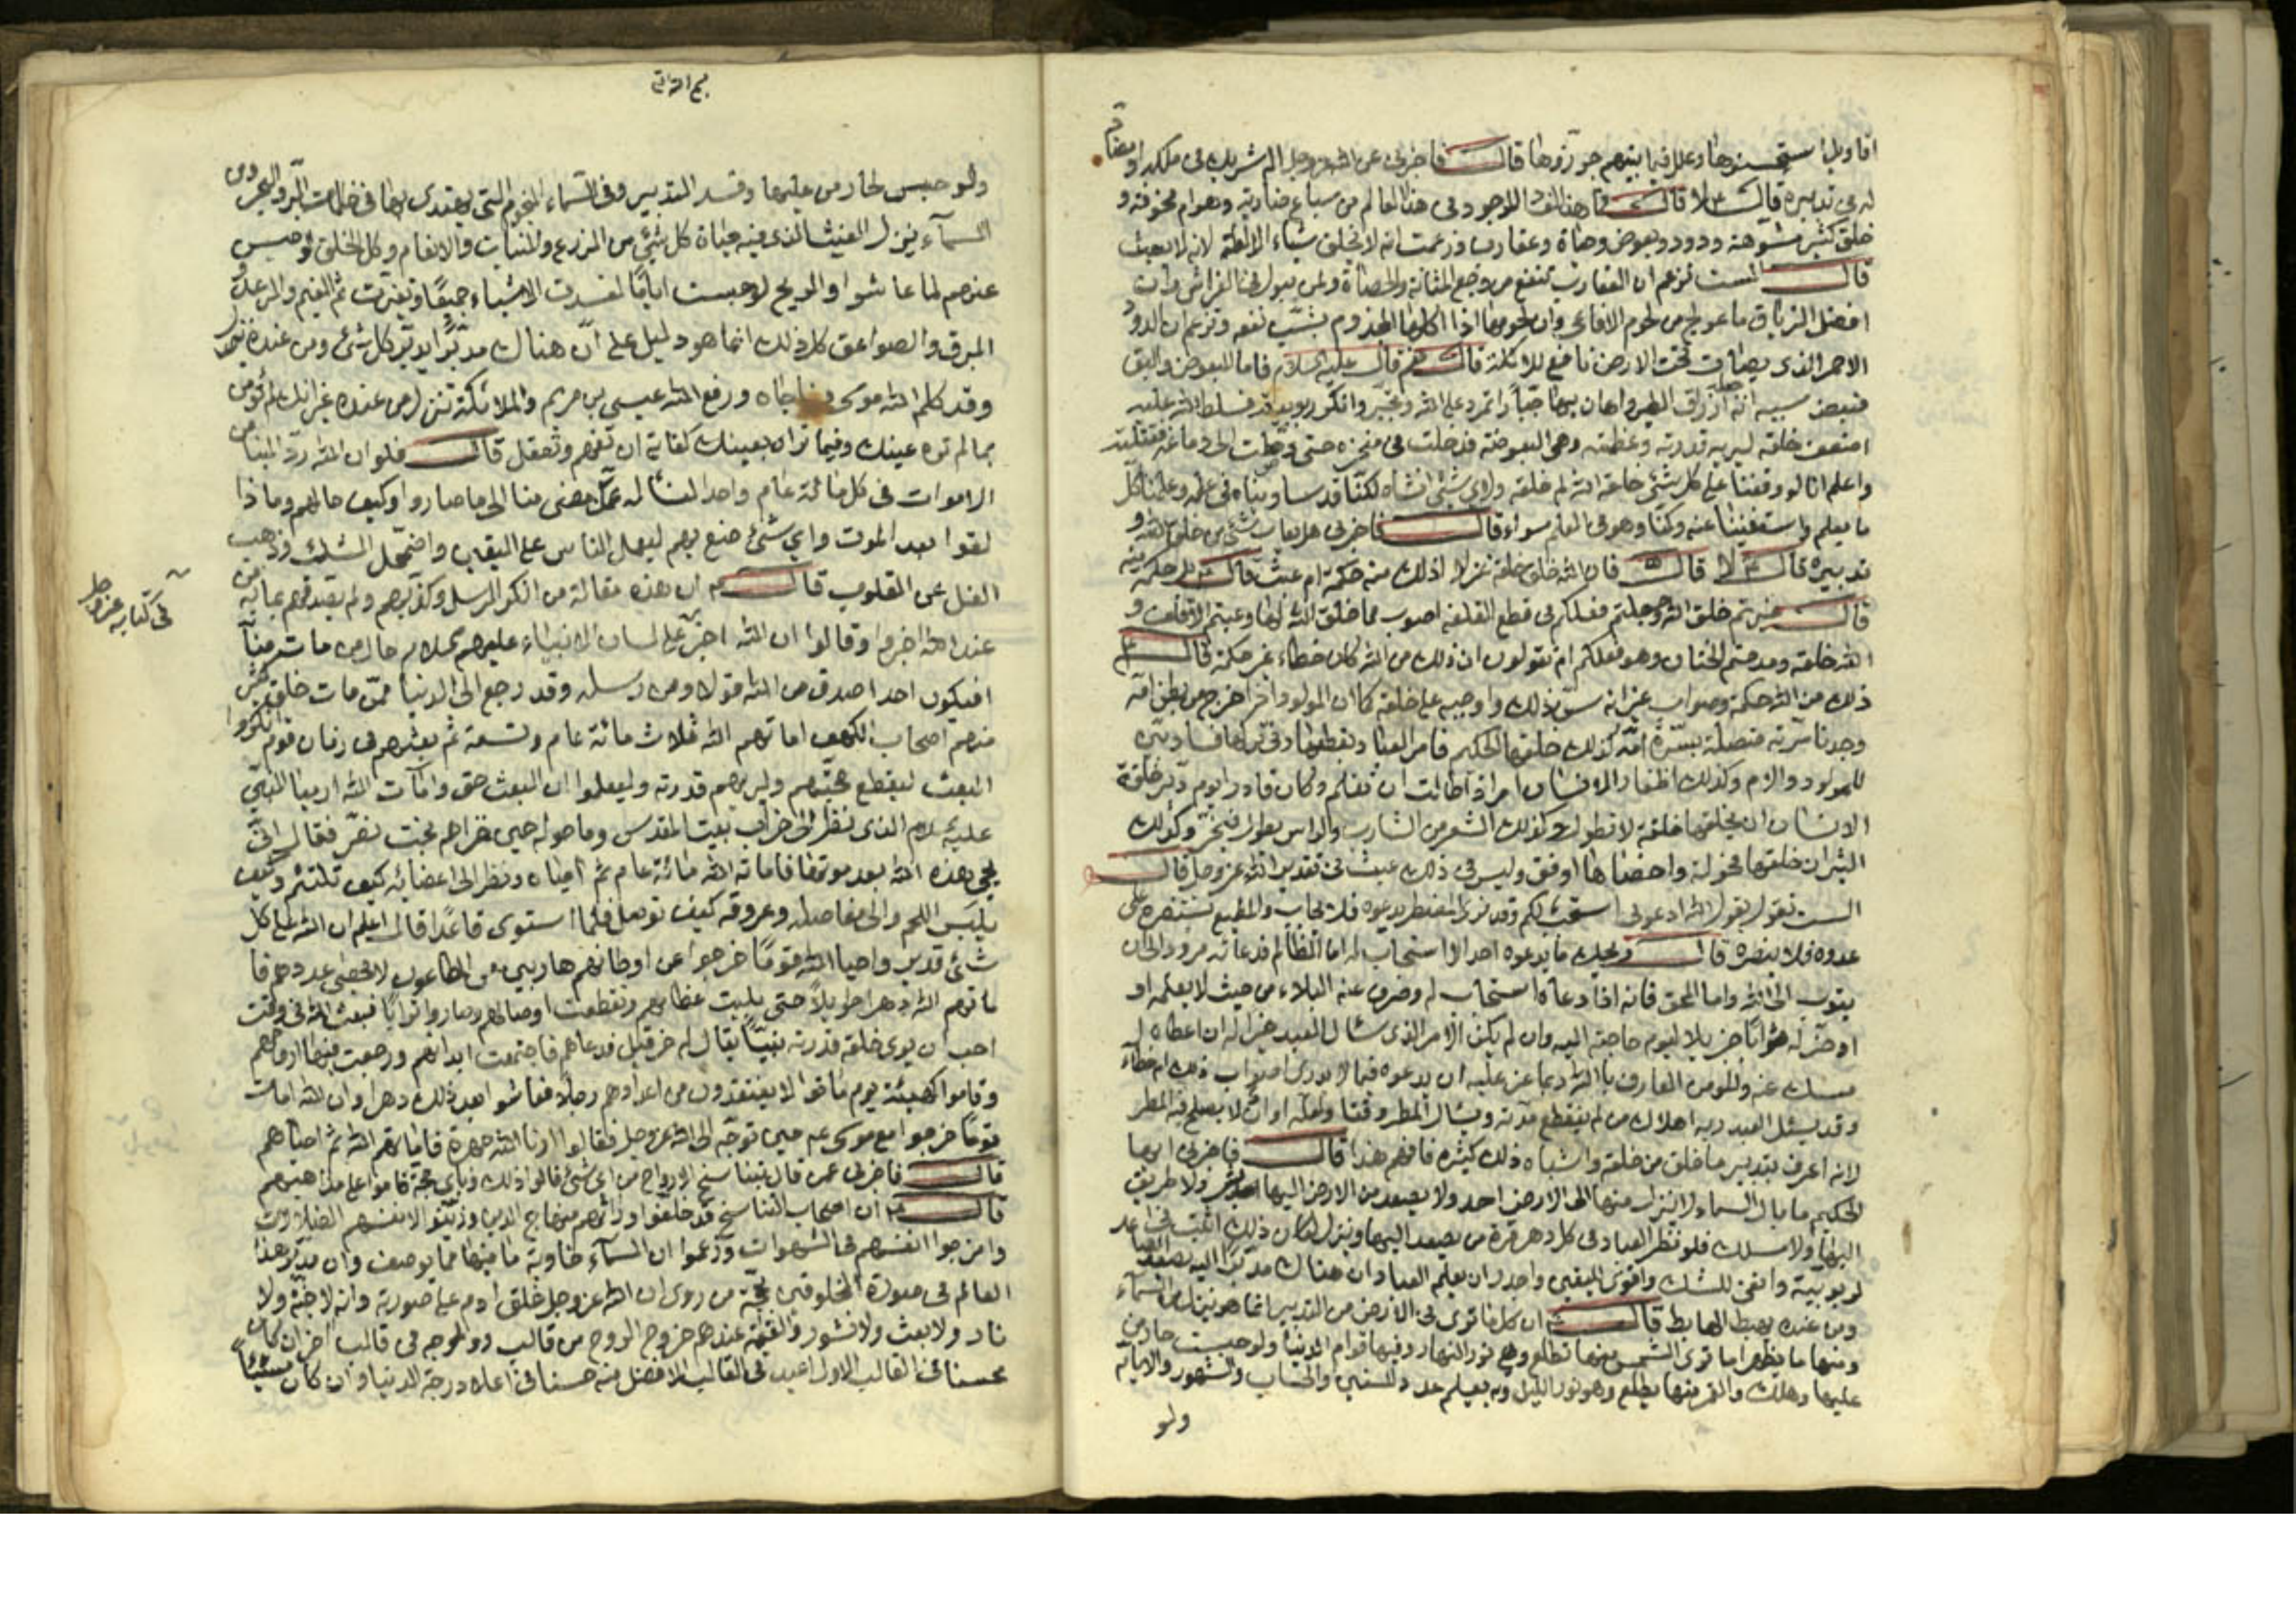 اقاويل استحسنوها وعللا فيما بينهم جوزوها قال فاخبرنى عن الله عز وجل اله شريك فى ملكه او مضاد
له فى تدبيره قال ع لا قال فما هذا الفساد الموجود فى هذا العالم من سباع ضارية وهوام مخوفة و
خلق كثير مشوهة ودود وبعوض وحيات وعقارب وزعمت انه لا يخلق شيئا الا لعلة لانه لا يعبث
قال الست تزعم ان العقارب تنفع من وجع المثانة والحصاة ولمن يبول فى الفراش وان
افضل الترياق ما عولج من لحوم الافاعى وان لحومها اذا اكلها المجذوم بشب نفعه وتزعم ان الدود
الاحمر الذى يصاب تحت الارض نافع للاكلة قال نعم قال عليه السلام فاما البعوض والبق
فبعض سببه انه ارزاق الطير واهان بها جبارا تمرد على الله وتجبر وانكر ربوبيته فسلط الله عليه
اضعف خلقه ليريه قدرته وعظمته وهى البعوضة فدخلت فى منخره حتى وصلت الى دماغه فقتلته
واعلم انا لو وقفنا على كل شئ خلقه الله لم خلقه ولاى شئ انشاه لكنا قد ساويناه فى علمه وعلمنا كل
ما يعلم واستغنينا عنه وكنا وهو فى العلم سواء قال فاخبرنى هل يعاب شئ من خلق الله و
تدبيره قال ع لا قال فان الله خلق خلقه غرلا اذلك منه حكمة ام عبث قال ع بل حكمة منه
قال غيرتم خلق الله وجعلتم فعلكم فى قطع القلفة اصوب مما خلق الله لها وعبتم الاقلف و
الله خلقه ومدحتم الختان وهو فعلكم ام تقولون ان ذلك من الله كان خطاء غير حكمة قال ع
ذلك من الله حكمة وصواب غير انه سن ذلك واوجبه على خلقه كما ان المولود اذا خرج من بطن امه
وجدنا سرته متصلة بسرة امه كذلك خلقها الحكيم فامر العباد بقطعها وفى تركها فساد بين
للمولود والام وكذلك اظفار الانسان امر اذا طالت ان تقلم وكان قادرا يوم دبر خلقة
الانسان ان يخلقها خلقة لا تطول وكذلك الشعر من الشارب والراس يطول فيجز وكذلك
الثيران خلقها فحولة واخصاها اوفق وليس فى ذلك عيب فى تقدير الله عز وجل قال
الست تقول يقول الله ادعونى استجب لكم وقد نرى المضطر يدعوه فلا يجاب والمطيع يستنصره على
عدوه فلا ينصره قال ويحك ما يدعوه احد الا استجاب له اما الظالم فدعائه مردود الى ان
يتوب الى الله واما المحق فانه اذا دعاه استجاب له وصرف عنه البلاء من حيث لا يعلمه او
ادخر له ثوابا جزيلا ليوم حاجته اليه وان لم يكن الامر الذى سئال العبد خيرا له ان اعطاه
امسك عنه والمومن العارف بالله ربما عز عليه ان يدعوه فيما لا يدرى اصواب ذلك ام خطاء
وقد يسئل العبد ربه اهلاك من لم ينقطع مدته ويسئال المطر وقتا ولعله اوان لا يصلح فيه المطر
لانه اعرف بتدبير ما خلق من خلقه واشباه ذلك كثيرة فافهم هذا قال فاخبرنى ايها
الحكيم ما بال السماء لا ينزل منها الى الارض احد ولا يصعد من الارض اليها بشر ولا طريق
اليها ولا مسلك فلو نظر العباد فى كل دهر مرة من يصعد اليها وينزل لكان ذلك اثبت فى
لربوبية وانفى للشك واقوى لليقين واجدر ان يعلم العباد ان هناك مدبرا اليه يصعد الصاعد
ومن عنده يهبط الهابط قال ان كل ما ترى فى الارض من التدبير انما هو ينزل من السماء
ومنها ما يظهر اما ترى الشمس منها تطلع وهى نور النهار وفيها قوام الدنيا ولو حبست حار من
عليها وهلك والقمر منها يطلع وهو نور الليل وبه يعلم عدد السنين والحساب والشهور والايام
ولو
ولو حبس لحار من عليها وفسد التدبير وفى السماء النجوم التى يهتدى بها فى ظلمات البر والبحر ومن
السماء ينزل الغيث الذى فيه حياة كل شئ من الزرع والنبات والانعام وكل الخلق لو حبس
عنهم لما عاشوا والريح لو حبست اياما لفسدت الاشياء جميعا وتغيرت ثم الغيم والرعد و
البرق والصواعق كل ذلك انما هو دليل على ان هناك مدبرا يدبر كل شئ ومن عنده ينزل
وقد كلم الله موسى وناجاه ورفع الله عيسى بن مريم والملائكة تنزل من عنده غير انك لم تؤمن
بما لم تره عينك وفيما تراه بعينك كفاية ان تفهم وتعقل قال فلو ان الله رد الينا من
الاموات فى كل مائة عام واحدا لنسئاله عمن مضى منا الى ما صاروا وكيف حالهم وماذا
لقوا بعد الموت واى شئ صنع بهم ليعمل الناس على اليقين واضمحل الشك وذهب
الغل عن القلوب قال ان هذه مقالة من انكر الرسل وكذبهم ولم يصدقهم بما به من
عند الله اخبروا وقالوا ان الله اخبر على لسان الانبياء عليهم السلام حال من مات منا
فى كتابه عز وجل
افيكون احد اصدق من الله قولا ومن رسله وقد رجع الى الدنيا ممن مات خلق كثير
منهم اصحاب الكهف اماتهم الله ثلاث مائة عام وتسعة ثم بعثهم فى زمان قوم انكروا
البعث ليقطع حجتهم وليريهم قدرته وليعلموا ان البعث حق وامات الله ارميا النبى
عليه السلام الذى نظر الى خراب بيت المقدس وما حوله حين غزاهم بخت نصر فقال انى
يحيى هذه الله بعد موتها فاماته الله مائة عام ثم احياه ونظر الى اعضائه كيف تلتئم وكيف
يلبس اللحم والى مفاصله وعروقه كيف توصل فلما استوى قاعدا قال اعلم ان الله على كل
شئ قدير واحيا الله قوما خرجوا عن اوطانهم هاربين من الطاعون لا يحصى عددهم فا
ماتهم الله دهرا طويلا حتى بليت عظامهم وتقطعت اوصالهم وصاروا ترابا فبعث الله فى وقت
احب ان يرى خلقه قدرته نبيا يقال له حزقيل فدعاهم فاجتمعت ابدانهم ورجعت فيها ارواحهم
وقاموا كهيئة يوم ماتوا لا يفتقدون من اعدادهم رجلا فعاشوا بعد ذلك دهرا وان الله امات
قوما خرجوا مع موسى ع حين توجه الى الله عز وجل فقالوا ارنا الله جهرة فاماتهم الله ثم احياهم
قال فاخبرنى عمن قال بتناسخ الارواح من اى شئ قالوا ذلك وباى حجة قاموا على مذاهبهم
قال ان اصحاب التناسخ قد خلفوا ورائهم منهاج الدين وزينوا لانفسهم الضلالات
وامرجوا انفسهم فى الشهوات وزعموا ان السماء خاوية ما فيها مما يوصف وان مدبر هذا
العالم فى صورة المخلوقين بحجة من روى ان الله عز وجل خلق ادم على صورته وانه لا جنة ولا
نار ولا بعث ولا نشور والقيمة عندهم خروج الروح من قالبه وولوجه فى قالب اخر ان كان
محسنا فى القالب الاول اعيد فى القالب الافضل منه حسنا فى اعلا درجة الدنيا وان كان مسيئا